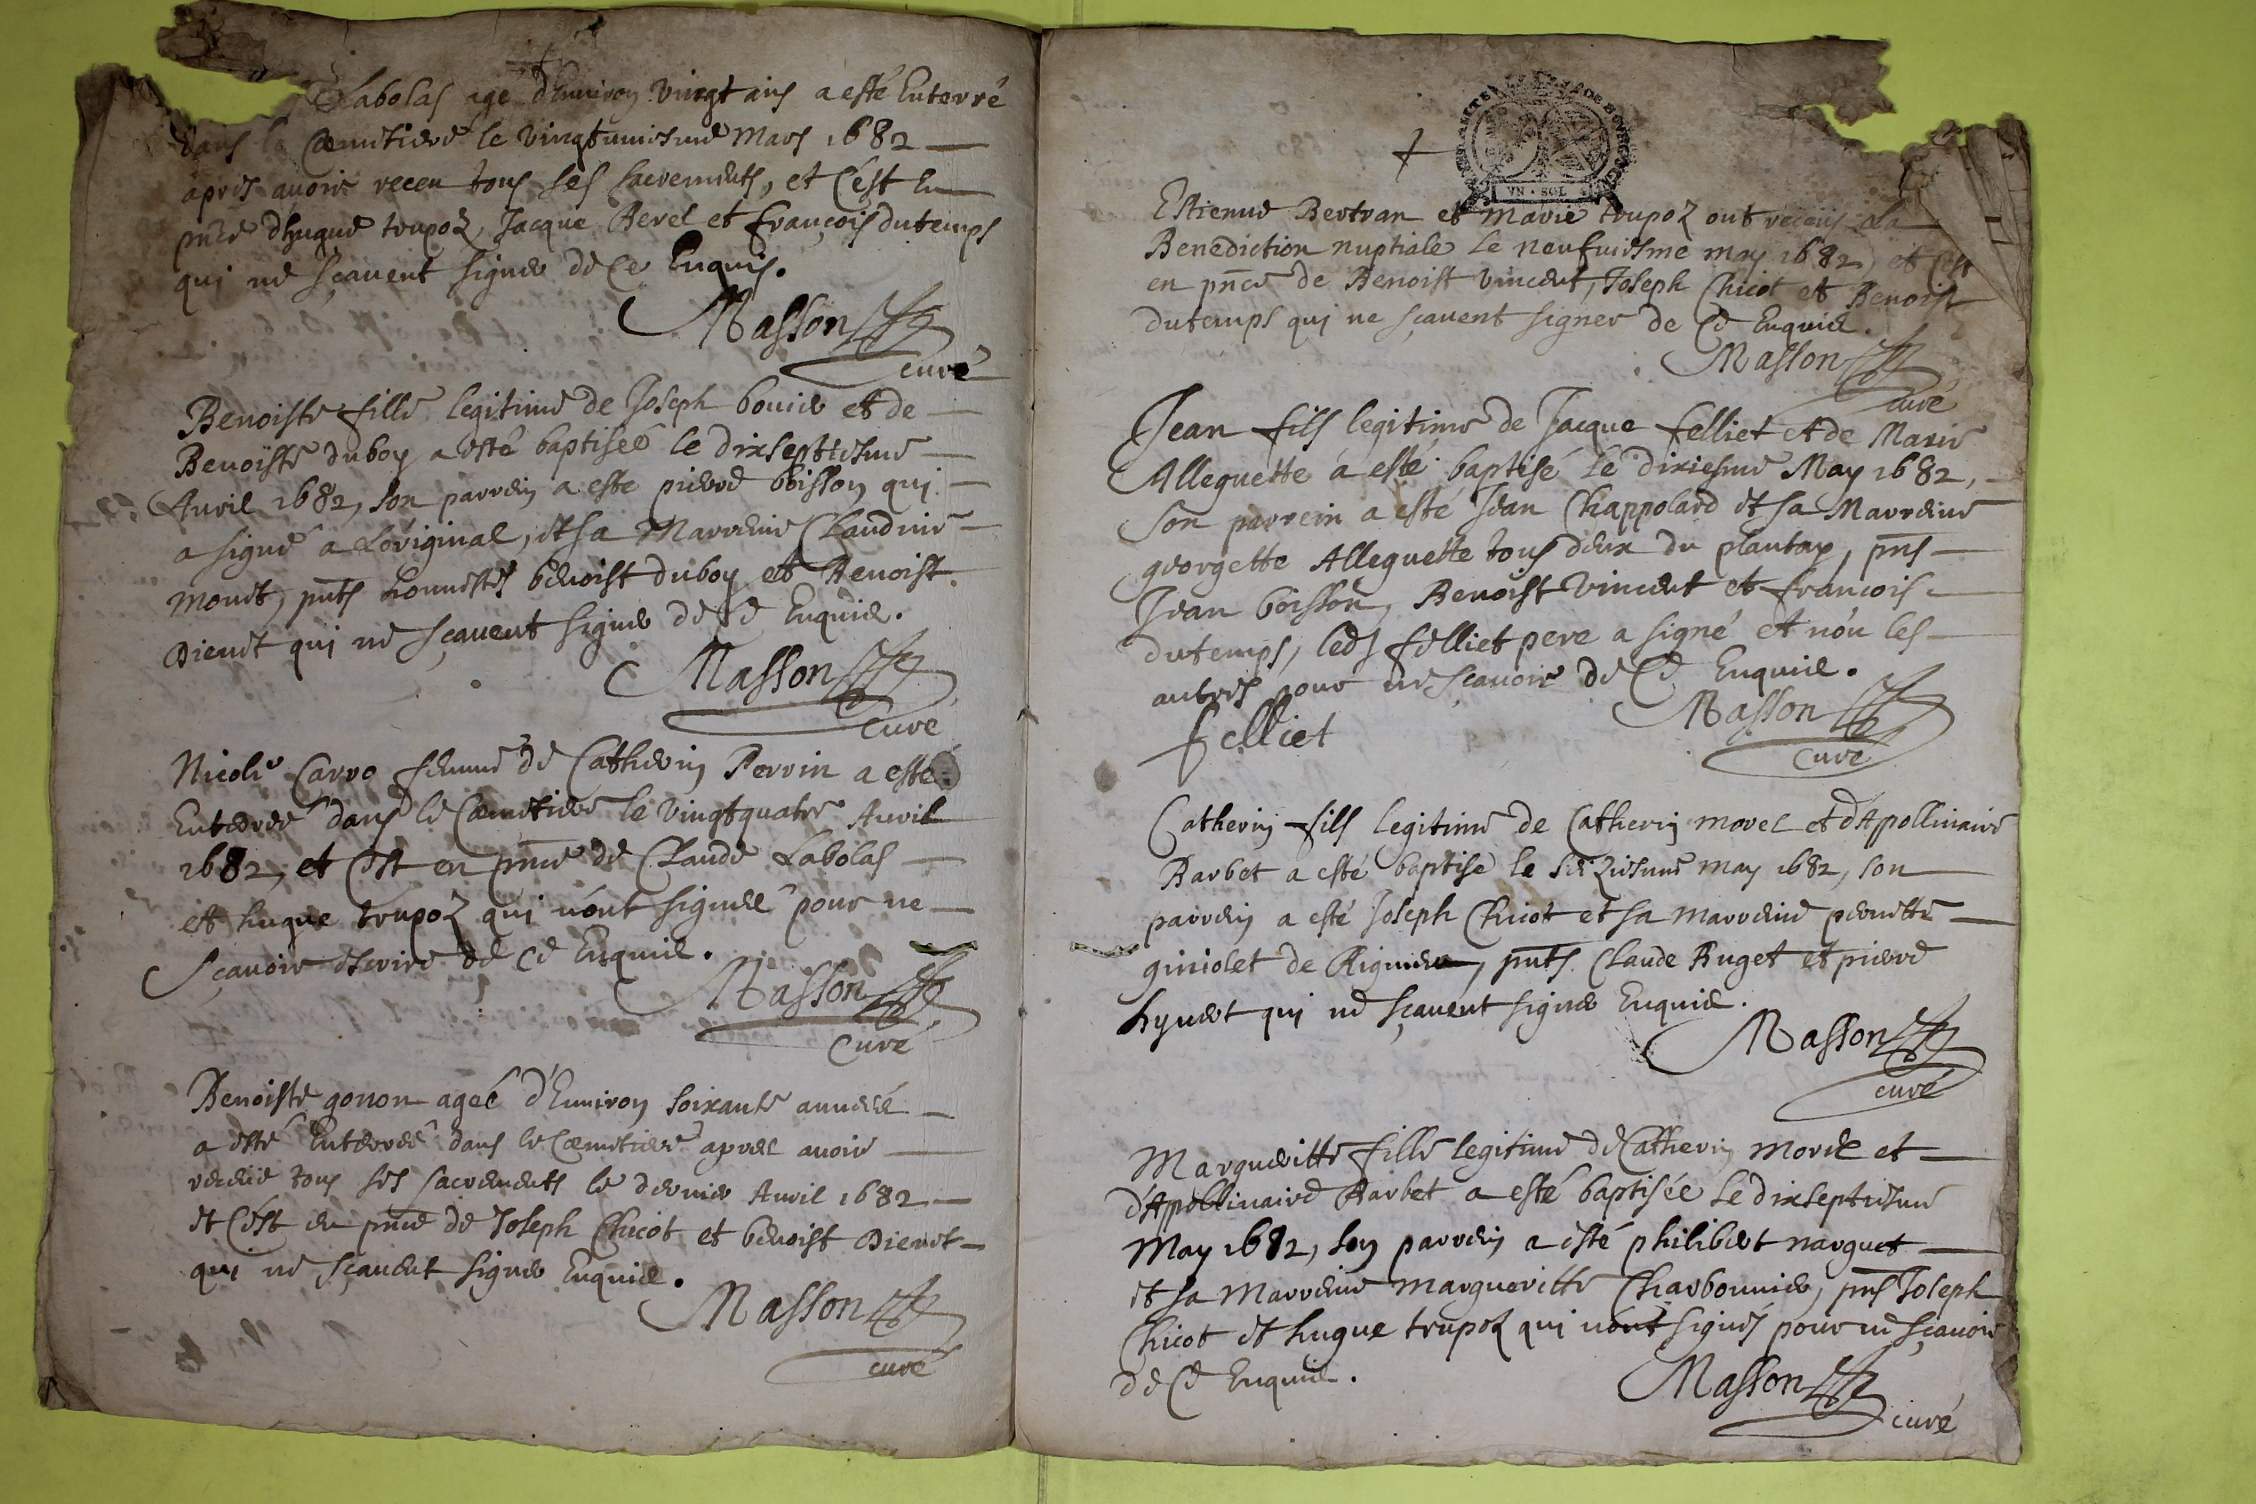 Labolas agé d'Environ vingt ans a esté Enterré
dans le Cœmitiere le vingtuniesme Mars 1682
apres avoir receu tous ses sacrements, et c'est En
pñce d'hugue trupoz, Jacque Berel et françois dutemps
qui ne sçavent signer de ce Enquis.
Masson
curé
Benoiste fille legitime de Joseph bouier et de
Benoiste duboy a esté baptiseé le dixseptiesme
Avril 1682, son parrein a este pierre boisson qui
a signé a L'original, et sa Marreine Claudine
Monet, pñts honnestes benoist duboy et Benoist
Dienet qui ne sçavent signer de ce Enquis.
Masson
curé
Nicole Carro femme de Catherin Perrin a esté
Enterreé dans le Cœmitiere le vingtquatre Avril
1682, et c'est en pñce de Claude Labolas
et hugue trupoz qui n'ont signes pour ne
sçavoir escrire de ce Enquis.
Masson
Curé
Benoiste gonon ageé d'Environ soixante années
a esté Enterreé dans le Cœmitiere apres avoir
receue tous ses sacrements le dernier Avril 1682
et c'est en pñce de Joseph Chicot et benoist Dienet
qui ne sçavent signer Enquis.
Masson
curé
VN · SOL
Estienne Bertran et Marie trupoz ont receus La
Benediction nuptiale Le neufuiesme may 1682, et c'est
en pñce de Benoist vincent, Joseph Chicot et Benoist
dutemps qui ne sçavent signer de ce Enquis.
Masson
curé
Jean fils legitime de Jacque felliet et de Marie
Alleguette a esté baptisé le dixiesme May 1682,
son parrein a esté Jean Chappolard et sa Marreine
georgette Alleguette tous deux du plantay, pñs
Jean boisson, Benoist vincent et françois
dutemps, led felliet pere a signé et non les
autres pour ne sçavoir de ce Enquis.
Masson
felliet
Curé
Catherin fils legitime de Catherin morel et d'Apollinaire
Barbet a esté baptise le seiziesme may 1682, son
parrein a esté Joseph Chicot et sa marreine pernette
giniolet de Rignieu, pñts Claude Buget et pierre
hyvert qui ne sçavent signer Enquis.
Masson
curé
Margueritte fille legitime de Catherin Morel et
d'Apollinaire Barbet a esté baptisée le dixseptiesme
May 1682, son parrein a esté philibert narguet
et sa Marreine margueritte Charbonnier, pñs Joseph
Chicot et hugue trupoz qui n'ont signés pour ne sçavoir
de ce Enquis.
Masson
curé